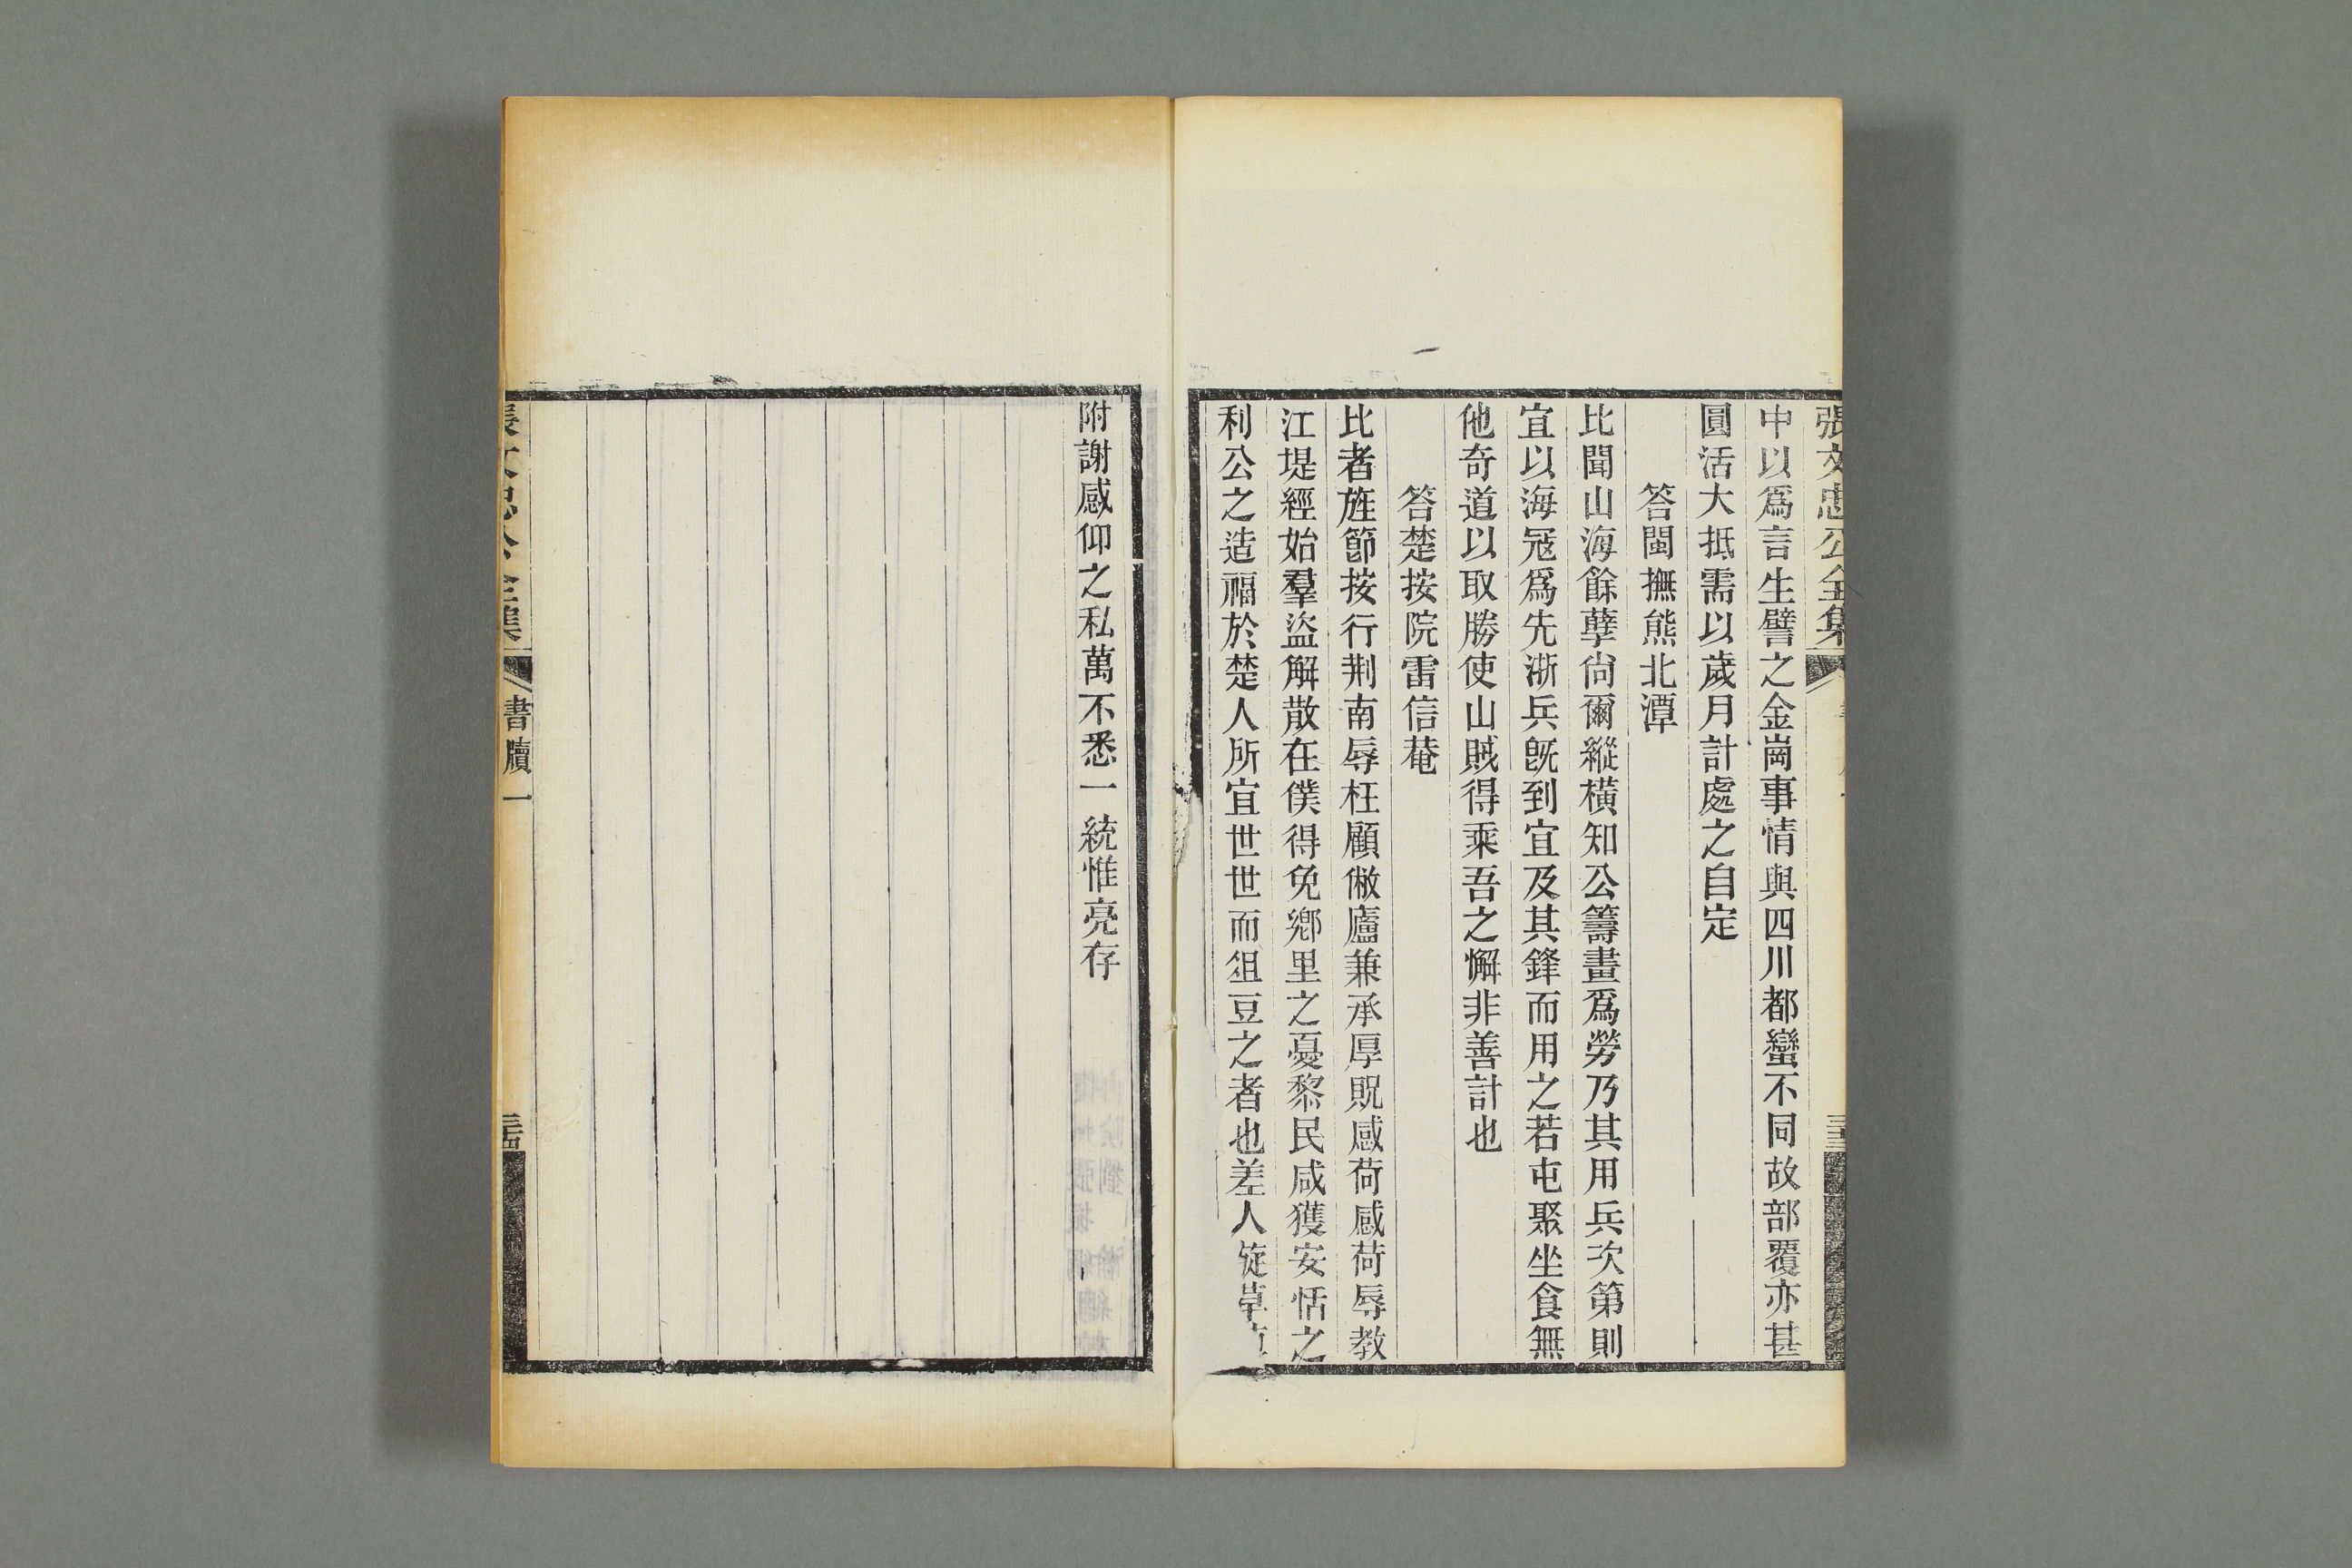 張文忠公全集
中以爲言生譬之金崗事情與四川都蠻不同故部覆亦甚
圓活大抵需以歲月計處之自定
答閩撫熊北潭
比聞山海餘孽尙爾縱橫知公籌畫爲勞乃其用兵次第則
宜以海冦爲先浙兵旣到宜及其鋒而用之若屯聚坐食無
他奇道以取勝使山賊得乘吾之懈非善計也
答楚按院雷信菴
比者旌節按行荆南辱枉顧敝廬兼承厚貺感荷感荷辱教
江堤經始羣盜解散在僕得免鄉里之憂黎民咸獲安恬之
利公之造福於楚人所宜世世而俎豆之者也差人旋草
附謝感仰之私萬不悉一統惟亮存
張文忠公全集
書牘一
三十四